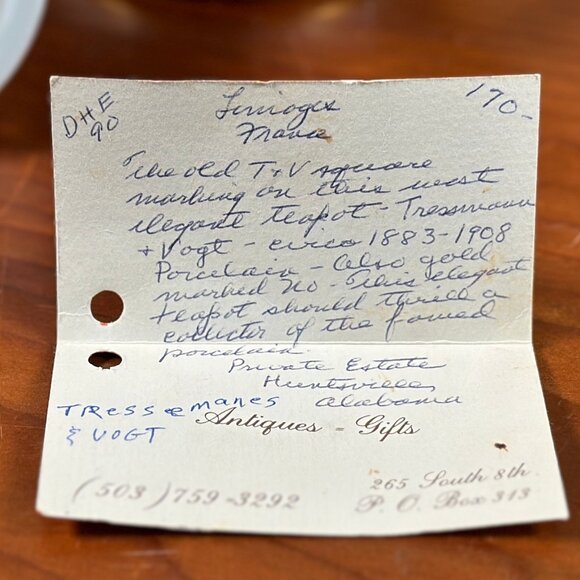 DHE
90
Limoges
France
170-
The old T+V square
marking on this most
elegant teapot - Tressmann
+ Vogt - circo 1883-1908
Porcelain - Also gold
marked no - This elegant
teapot should thrill a
collector of the famed
porcelain.
Private Estate
Huntsville
Alabama
TRESSeMANES
& VOGT
Antiques - Gifts
(503)759-3292
265 South 8th
P. O. Box 343